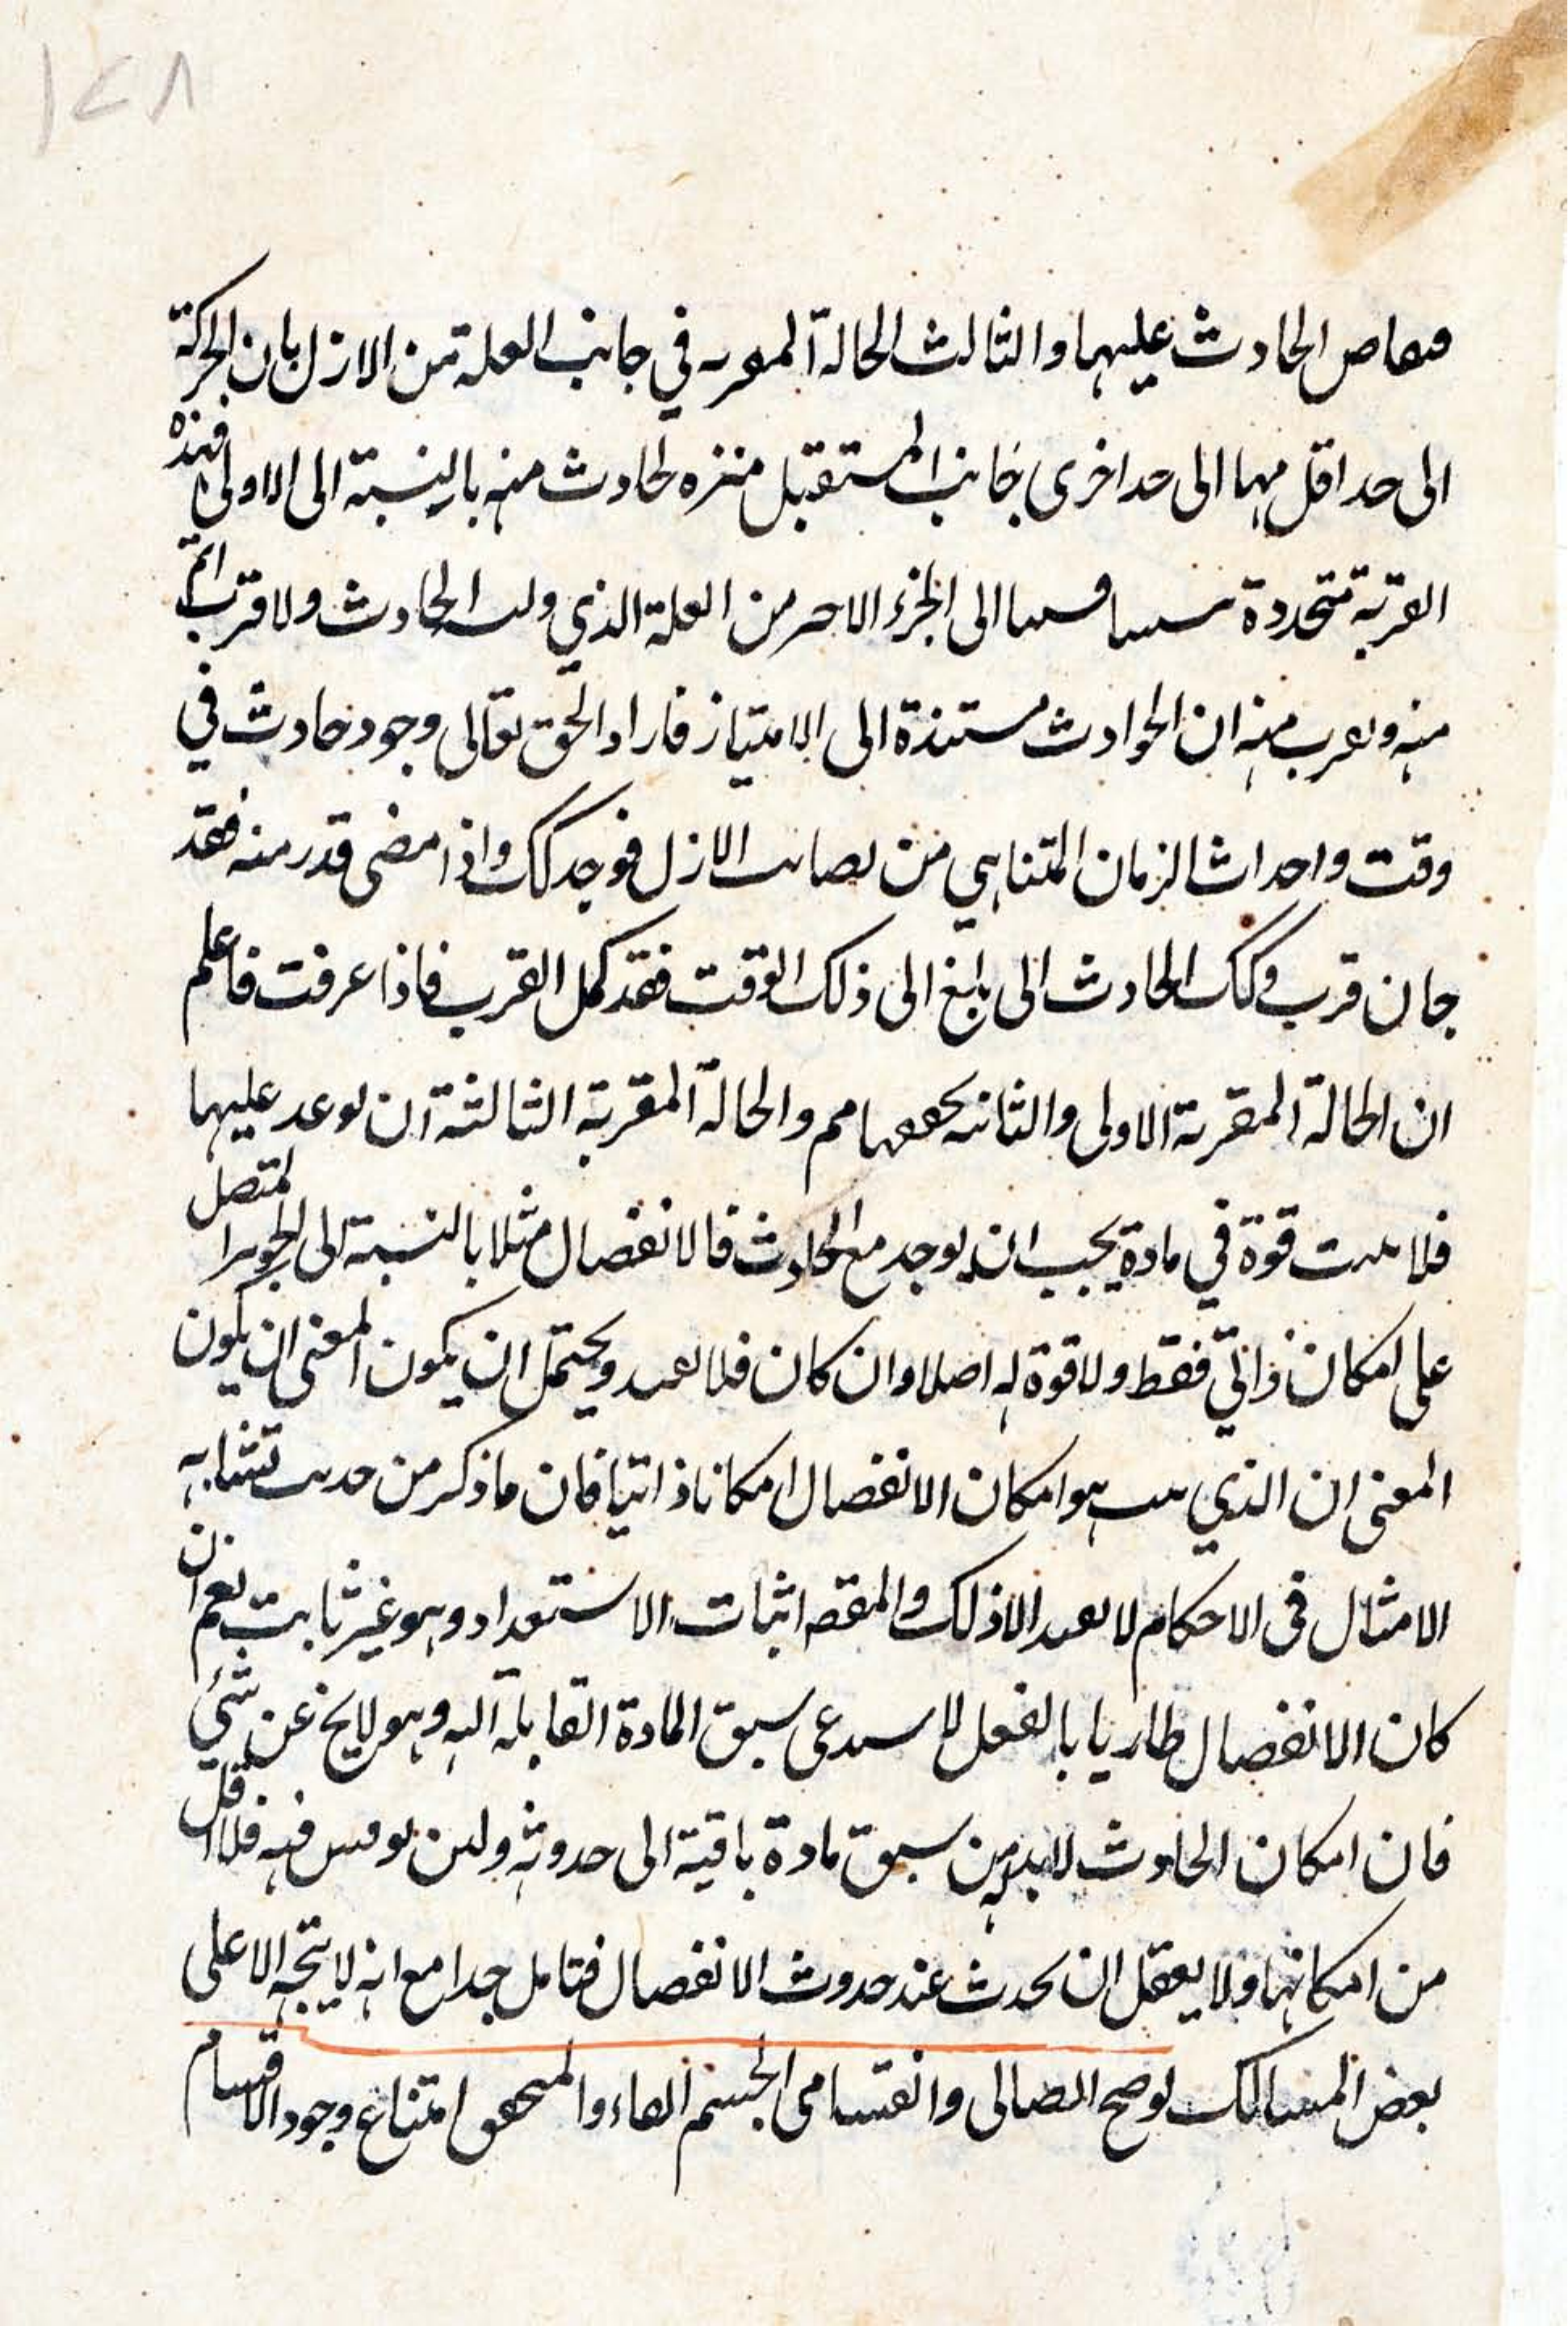 ١٢٨
الحادث عليهما والثالث الحالة في جانب العلة من الازل بان الحركة
الى حد اقل مهما الى حد اخرى جانب المستقبل منزه لحادث منه بالنسبة الى الاولى فهذه
القربة متحددة الى الجزء الاحر من العلة الذي الحادث ولا قرب اتم
منه ويعرب منه ان الحوادث مستندة الى الامتياز فاراد الحق تعالى وجود حادث في
وقت واحداث الزمان المتناهي من الازل فوجد كك واذا مضى قدر منه فقد
جان قرب وكك الحادث الى بلغ الى ذلك الوقت فقد كمل القرب فاذا عرفت فاعلم
ان الحالة المقربة الاولى والثانيه مم والحالة المقربة الثالثة ان عليهما
فلا قوة في مادة يجب ان يوجد مع الحادث فالانفصال مثلا بالنسبة الى الجوهر المتصل
على امكان ذاتي فقط ولا قوة له اصلا وان كان فلا ويحتمل ان يكون المعنى ان يكون
المعنى ان الذي هو امكان الانفصال امكانا ذاتيا فان ما ذكر من حديث تشابه
الامثال في الاحكام لا يفيد الا ذلك والمقصه اثبات الاستعداد وهو غير ثابت نعم ان
كان الانفصال طاريا بالفعل لا سبق المادة القابلة اليه وهو لا يخ عن شئ
فان امكان الحادث لابد له من سبق مادة باقية الى حدوثه ولئن نوقش فيه فلا اقل
من امكانها ولا يعقل ان يحدث عند حدوث الانفصال فتامل جدا مع انه لا يتجه الا على
بعض المسالك الجسم امتناع وجود الاقسام